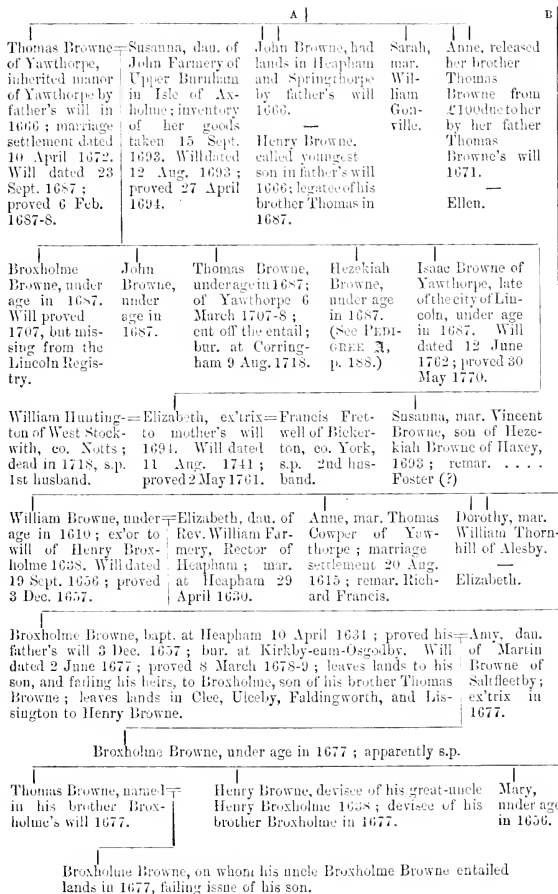 A
B
Thomas Browne=
of Yawthorpe,
inherited manor
of Yawthorpe by
father's will in
1666 ; marriage
settlement dated
10 April 1672.
Will dated 23
Sept. 1687 ;
proved 6 Feb.
1687-8.
Susanna, dau. of
John Farmery of
Upper Burnham
in Isle of Ax-
holme; inventory
of her goods
taken 15 Sept.
1693. Will dated
12 Aug. 1693 ;
proved 27 April
1694.
John Browne, had
lands in Heapham
and Springthorpe
by father's will
1666.
—
Henry Browne,
called youngest
son in father's will
1666; legatee of his
brother Thomas in
1687.
Sarah,
mar.
Wil-
liam
Gon-
ville.
Anne, released
her brother
Thomas
Browne from
£100 due to her
by her father
Thomas
Browne's will
1671.
—
Ellen.
Broxholme
Browne, under
age in 1687.
Will proved
1707, but mis-
sing from the
Lincoln Regis-
try.
John
Browne,
under
age in
1687.
Thomas Browne,
under age in 1687;
of Yawthorpe 6
March 1707-8 ;
cut off the entail ;
bur. at Corring-
ham 9 Aug. 1718.
Hezekiah
Browne,
under age
in 1687.
(See PEDI-
GREE A,
p. 188.)
Isaac Browne of
Yawthorpe, late
of the city of Lin-
coln, under age
in 1687. Will
dated 12 June
1762 ; proved 30
May 1770.
William Hunting-=
ton of West Stock-
with, co. Notts ;
dead in 1718, s.p.
1st husband.
Elizabeth, ex'trix=
to mother's will
1694. Will dated
11 Aug. 1741 ;
proved 2 May 1761.
Francis Fret-
well of Bicker-
ton, co. York,
s.p. 2nd hus-
band.
Susanna, mar. Vincent
Browne, son of Heze-
kiah Browne of Haxey,
1693 ; remar. . . . .
Foster (?)
William Browne, under=
age in 1610 ; ex'or to
will of Henry Brox-
holme 1638. Will dated
19 Sept. 1656 ; proved
3 Dec. 1657.
Elizabeth, dau. of
Rev. William Far-
mery, Rector of
Heapham ; mar.
at Heapham 29
April 1630.
Anne, mar. Thomas
Cowper of Yaw-
thorpe ; marriage
settlement 20 Aug.
1615 ; remar. Rich-
ard Francis.
Dorothy, mar.
William Thorn-
hill of Alesby.
—
Elizabeth.
Broxholme Browne, bapt. at Heapham 10 April 1631 ; proved his=
father's will 3 Dec. 1657 ; bur. at Kirkby-cum-Osgodby. Will
dated 2 June 1677 ; proved 8 March 1678-9 ; leaves lands to his
son, and failing his heirs, to Broxholme, son of his brother Thomas
Browne ; leaves lands in Clee, Ulceby, Faldingworth, and Lis-
sington to Henry Browne.
Amy, dau.
of Martin
Browne of
Saltfleetby ;
ex'trix in
1677.
Broxholme Browne, under age in 1677 ; apparently s.p.
Thomas Browne, named=
in his brother Brox-
holme's will 1677.
Henry Browne, devisee of his great-uncle
Henry Broxholme 1638 ; devisee of his
brother Broxholme in 1677.
Mary,
under age
in 1656.
Broxholme Browne, on whom his uncle Broxholme Browne entailed
lands in 1677, failing issue of his son.